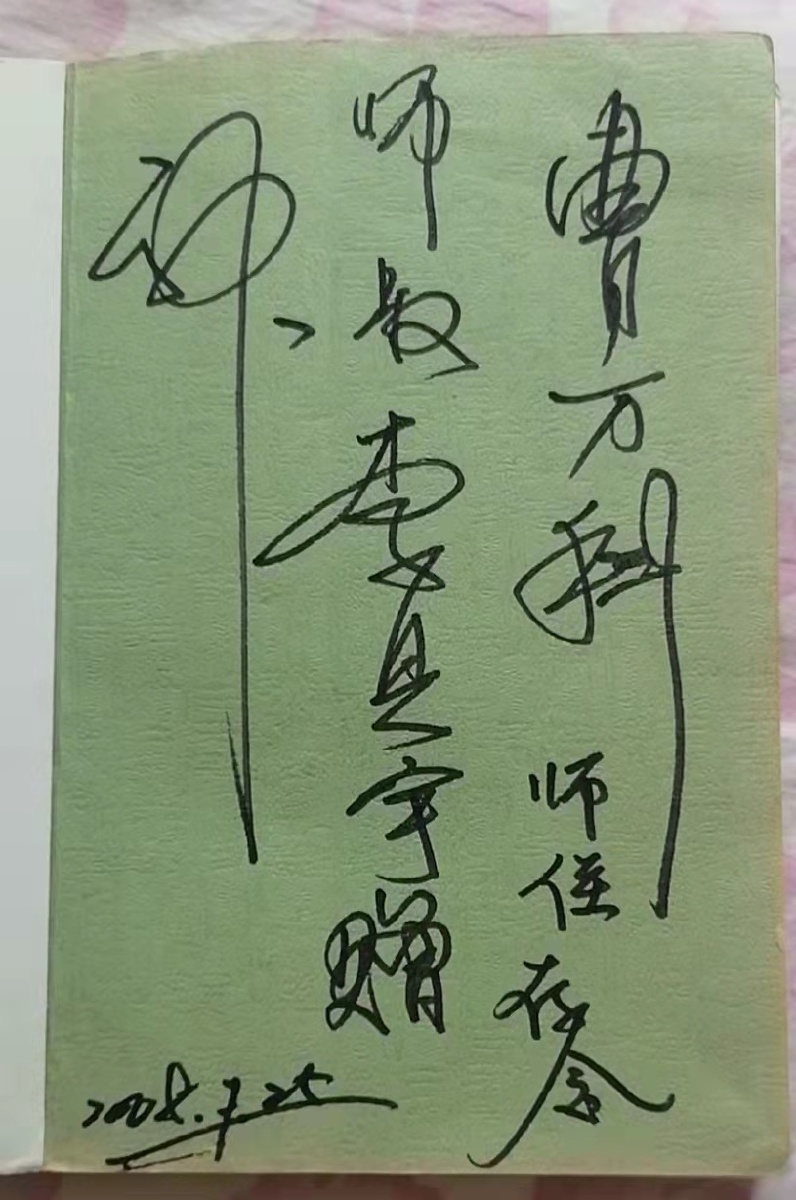 曹万科 师侄存念
师叔李具宇赠
2008.7.25